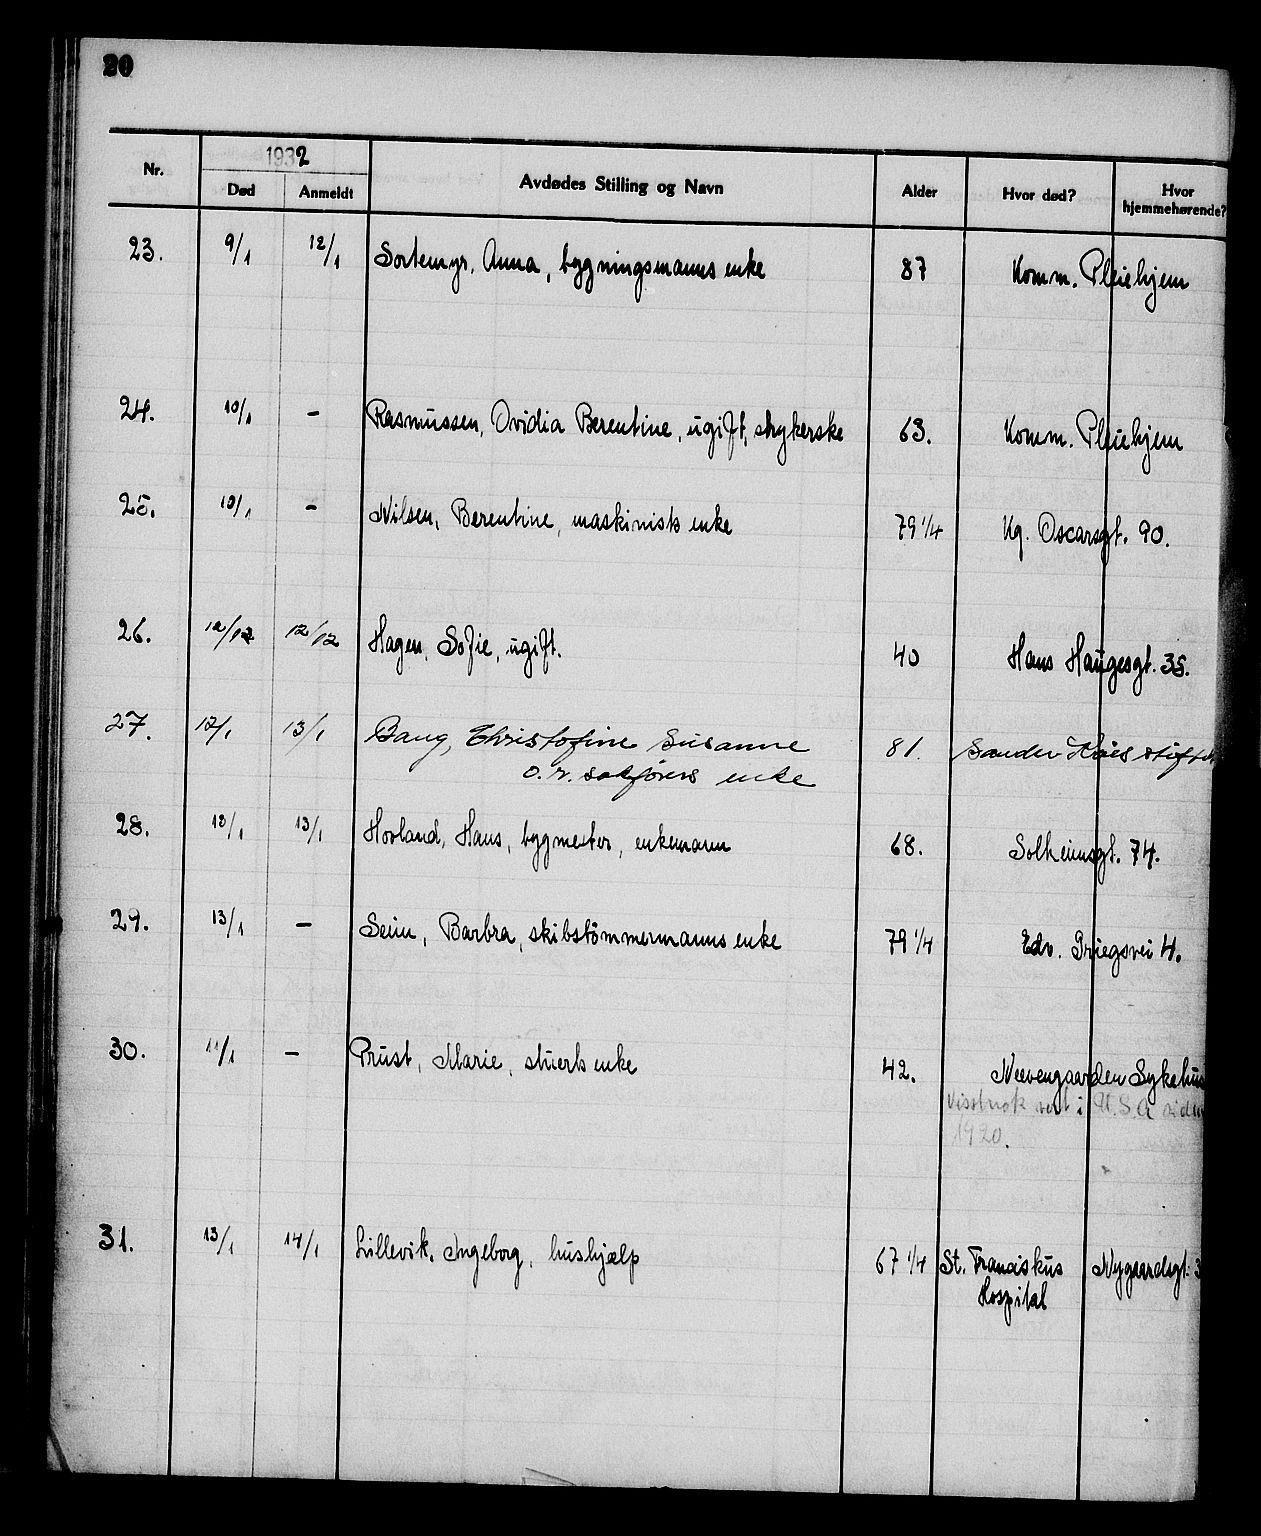 20
Nr. 1932 Død Anmeldt Avdødes Stilling og Navn Alder Hvor død? Hvor hjemmehørende?
23. 9/1 12/1 Sortemyr, Anna, bygningsmanns enke 87 Komm. Pleiehjem
24. 10/1 - Rasmussen, Ovidia Berentine, ugift, strykerske 63. Komm. Pleiehjem
25. 10/1 - Nilsen, Berentine, maskinists enke 79 1/4 Kg. Oscarsgt. 90.
26. 12/12 12/12 Hagen, Sofie, ugift. 40 Hans Haugesgt. 35.
27. 12/1 13/1 Baug, Christofine Susanne 81. Sander Kaaes
o.r. sakførers enke
28. 12/1 13/1 Hovland, Hans, bygmester, enkemann 68. Solheimsgt. 74.
29. 13/1 - Seim, Barbra, skibstömmermanns enke 79 1/4 Edv. Griegsvei 4.
30. 11/1 - Prüst, Marie, stuerts enke 42. Neevengaarden Sykehus
Visstnok vert i U.S.A siden
1920.
31. 13/1 14/1 Lillevik, Ingeborg, hushjælp 67 1/4 St. Franciskus Nygaardsgt. 3
Hospital